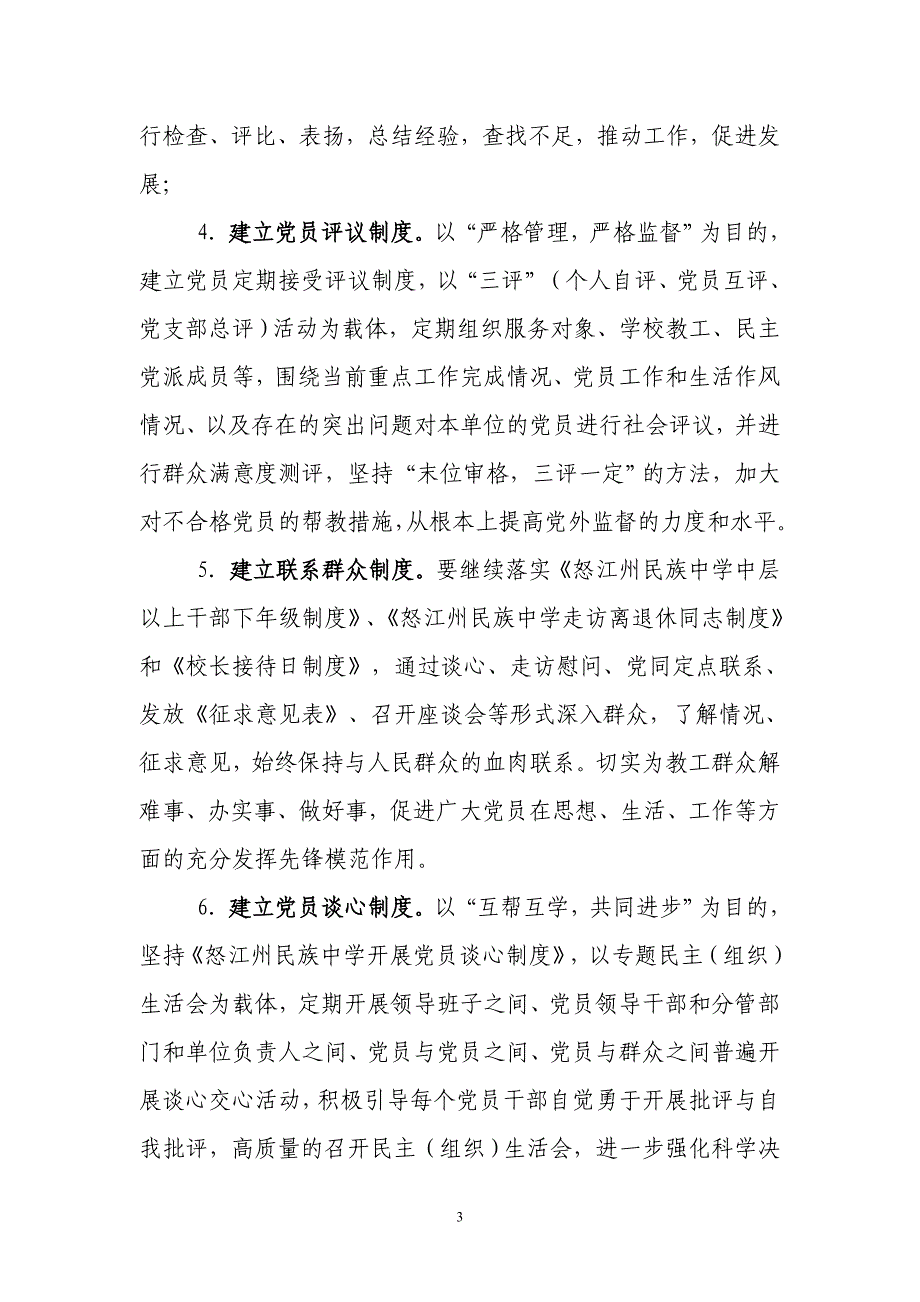 行检查、评比、表扬，总结经验，查找不足，推动工作，促进发
展；
4．建立党员评议制度。以“严格管理，严格监督”为目的，
建立党员定期接受评议制度，以“三评”（个人自评、党员互评、
党支部总评）活动为载体，定期组织服务对象、学校教工、民主
党派成员等，围绕当前重点工作完成情况、党员工作和生活作风
情况、以及存在的突出问题对本单位的党员进行社会评议，并进
行群众满意度测评，坚持“末位审格，三评一定”的方法，加大
对不合格党员的帮教措施，从根本上提高党外监督的力度和水平。
5．建立联系群众制度。要继续落实《怒江州民族中学中层
以上干部下年级制度》、《怒江州民族中学走访离退休同志制度》
和《校长接待日制度》，通过谈心、走访慰问、党同定点联系、
发放《征求意见表》、召开座谈会等形式深入群众，了解情况、
征求意见，始终保持与人民群众的血肉联系。切实为教工群众解
难事、办实事、做好事，促进广大党员在思想、生活、工作等方
面的充分发挥先锋模范作用。
6．建立党员谈心制度。以“互帮互学，共同进步”为目的，
坚持《怒江州民族中学开展党员谈心制度》，以专题民主（组织）
生活会为载体，定期开展领导班子之间、党员领导干部和分管部
门和单位负责人之间、党员与党员之间、党员与群众之间普遍开
展谈心交心活动，积极引导每个党员干部自觉勇于开展批评与自
我批评，高质量的召开民主（组织）生活会，进一步强化科学决
3